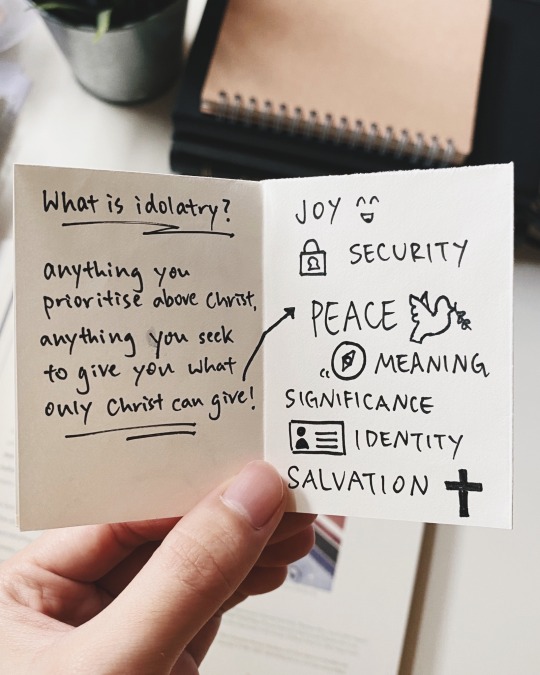 What is idolatry?
anything you
prioritise above Christ,
anything you seek
to give you what
only Christ can give!
JOY
SECURITY
PEACE
MEANING
SIGNIFICANCE
IDENTITY
SALVATION